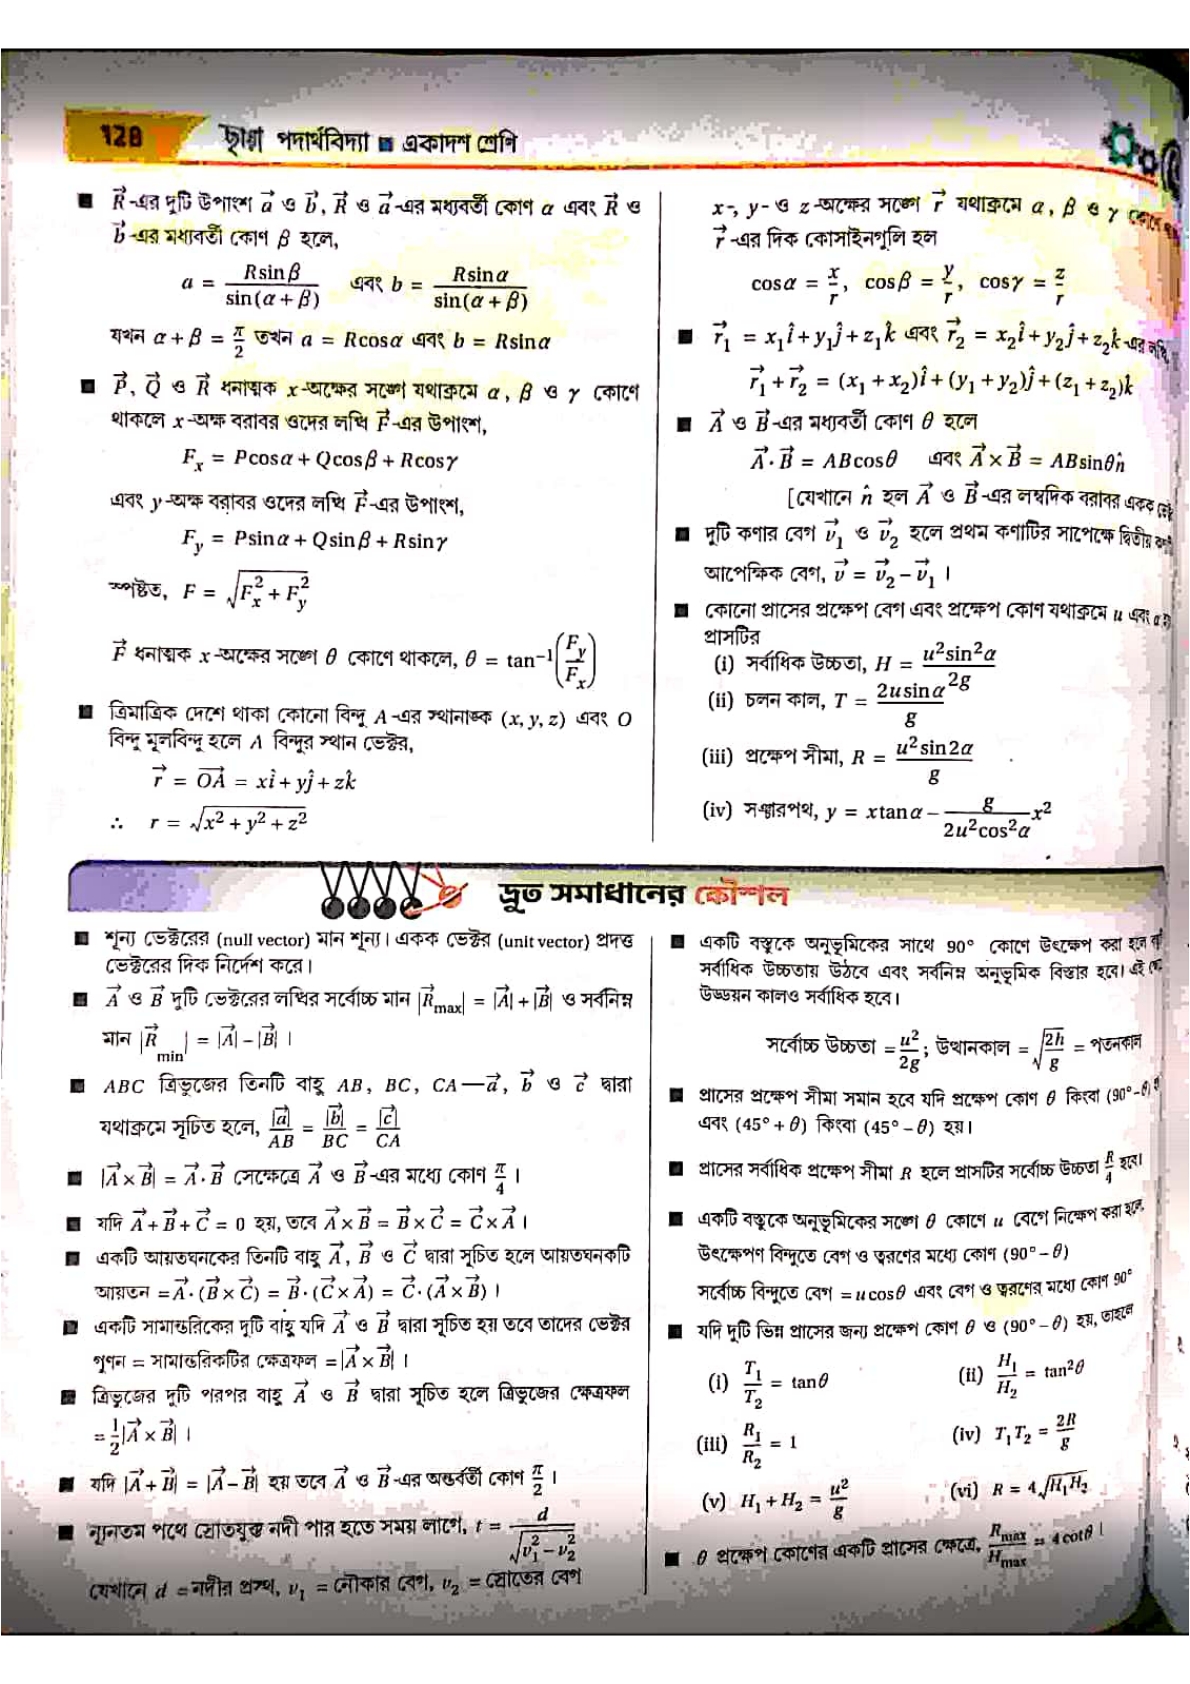 128 ছায়া পদার্থবিদ্যা ■ একাদশ শ্রেণি
■ R⃗-এর দুটি উপাংশ a⃗ ও b⃗, R⃗ ও a⃗-এর মধ্যবর্তী কোণ α এবং R⃗ ও
b⃗-এর মধ্যবর্তী কোণ β হলে,
a = Rsinβ / sin(α + β) এবং b = Rsinα / sin(α + β)
যখন α + β = π/2 তখন a = Rcosα এবং b = Rsinα
■ P⃗, Q⃗ ও R⃗ ধনাত্মক x-অক্ষের সঙ্গে যথাক্রমে α, β ও γ কোণে
থাকলে x-অক্ষ বরাবর ওদের লব্ধি F⃗-এর উপাংশ,
Fₓ = Pcosα + Qcosβ + Rcosγ
এবং y-অক্ষ বরাবর ওদের লব্ধি F⃗-এর উপাংশ,
F_y = Psinα + Qsinβ + Rsinγ
স্পষ্টত, F = √(Fₓ² + F_y²)
F⃗ ধনাত্মক x-অক্ষের সঙ্গে θ কোণে থাকলে, θ = tan⁻¹(F_y/Fₓ)
■ ত্রিমাত্রিক দেশে থাকা কোনো বিন্দু A-এর স্থানাঙ্ক (x, y, z) এবং O
বিন্দু মূলবিন্দু হলে A বিন্দুর স্থান ভেক্টর,
r⃗ = OA⃗ = xî + yĵ + zk̂
∴ r = √(x² + y² + z²)
x-, y- ও z-অক্ষের সঙ্গে r⃗ যথাক্রমে α, β ও γ কোণে
r⃗-এর দিক কোসাইনগুলি হল
cosα = x/r, cosβ = y/r, cosγ = z/r
■ r⃗₁ = x₁î + y₁ĵ + z₁k̂ এবং r⃗₂ = x₂î + y₂ĵ + z₂k̂-এর লব্ধি,
r⃗₁ + r⃗₂ = (x₁ + x₂)î + (y₁ + y₂)ĵ + (z₁ + z₂)k̂
■ A⃗ ও B⃗-এর মধ্যবর্তী কোণ θ হলে
A⃗·B⃗ = ABcosθ এবং A⃗ × B⃗ = ABsinθn̂
[যেখানে n̂ হল A⃗ ও B⃗-এর লম্বদিক বরাবর একক
■ দুটি কণার বেগ v⃗₁ ও v⃗₂ হলে প্রথম কণাটির সাপেক্ষে দ্বিতীয়
আপেক্ষিক বেগ, v⃗ = v⃗₂ − v⃗₁ ।
■ কোনো প্রাসের প্রক্ষেপ বেগ এবং প্রক্ষেপ কোণ যথাক্রমে u এবং α
প্রাসটির
(i) সর্বাধিক উচ্চতা, H = u²sin²α / 2g
(ii) চলন কাল, T = 2usinα / g
(iii) প্রক্ষেপ সীমা, R = u²sin2α / g
(iv) সঞ্চারপথ, y = xtanα − g/(2u²cos²α) x²
দ্রুত সমাধানের কৌশল
■ শূন্য ভেক্টরের (null vector) মান শূন্য। একক ভেক্টর (unit vector) প্রদত্ত
ভেক্টরের দিক নির্দেশ করে।
■ A⃗ ও B⃗ দুটি ভেক্টরের লব্ধির সর্বোচ্চ মান |R⃗max| = |A⃗| + |B⃗| ও সর্বনিম্ন
মান |R⃗min| = |A⃗| − |B⃗| ।
■ ABC ত্রিভুজের তিনটি বাহু AB, BC, CA—a⃗, b⃗ ও c⃗ দ্বারা
যথাক্রমে সূচিত হলে, |a⃗|/AB = |b⃗|/BC = |c⃗|/CA
■ |A⃗ × B⃗| = A⃗·B⃗ সেক্ষেত্রে A⃗ ও B⃗-এর মধ্যে কোণ π/4 ।
■ যদি A⃗ + B⃗ + C⃗ = 0 হয়, তবে A⃗ × B⃗ = B⃗ × C⃗ = C⃗ × A⃗ ।
■ একটি আয়তঘনকের তিনটি বাহু A⃗, B⃗ ও C⃗ দ্বারা সূচিত হলে আয়তঘনকটি
আয়তন = A⃗·(B⃗ × C⃗) = B⃗·(C⃗ × A⃗) = C⃗·(A⃗ × B⃗) ।
■ একটি সামান্তরিকের দুটি বাহু যদি A⃗ ও B⃗ দ্বারা সূচিত হয় তবে তাদের ভেক্টর
গুণন = সামান্তরিকটির ক্ষেত্রফল = |A⃗ × B⃗| ।
■ ত্রিভুজের দুটি পরপর বাহু A⃗ ও B⃗ দ্বারা সূচিত হলে ত্রিভুজের ক্ষেত্রফল
= 1/2|A⃗ × B⃗| ।
■ যদি |A⃗ + B⃗| = |A⃗ − B⃗| হয় তবে A⃗ ও B⃗-এর অন্তর্বর্তী কোণ π/2 ।
■ ন্যূনতম পথে স্রোতযুক্ত নদী পার হতে সময় লাগে, t = d/√(v₁² − v₂²)
যেখানে d = নদীর প্রস্থ, v₁ = নৌকার বেগ, v₂ = স্রোতের বেগ
■ একটি বস্তুকে অনুভূমিকের সাথে 90° কোণে উৎক্ষেপ করা হলে
সর্বাধিক উচ্চতায় উঠবে এবং সর্বনিম্ন অনুভূমিক বিস্তার হবে। এই
উড্ডয়ন কালও সর্বাধিক হবে।
সর্বোচ্চ উচ্চতা = u²/2g ; উত্থানকাল = √(2h/g) = পতনকাল
■ প্রাসের প্রক্ষেপ সীমা সমান হবে যদি প্রক্ষেপ কোণ θ কিংবা (90° − θ)
এবং (45° + θ) কিংবা (45° − θ) হয়।
■ প্রাসের সর্বাধিক প্রক্ষেপ সীমা R হলে প্রাসটির সর্বোচ্চ উচ্চতা R/4 হবে।
■ একটি বস্তুকে অনুভূমিকের সঙ্গে θ কোণে u বেগে নিক্ষেপ করা হলে,
উৎক্ষেপণ বিন্দুতে বেগ ও ত্বরণের মধ্যে কোণ (90° − θ)
সর্বোচ্চ বিন্দুতে বেগ = u cosθ এবং বেগ ও ত্বরণের মধ্যে কোণ 90°
■ যদি দুটি ভিন্ন প্রাসের জন্য প্রক্ষেপ কোণ θ ও (90° − θ) হয়, তাহলে
(i) T₁/T₂ = tanθ (ii) H₁/H₂ = tan²θ
(iii) R₁/R₂ = 1 (iv) T₁T₂ = 2R/g
(v) H₁ + H₂ = u²/g (vi) R = 4√(H₁H₂)
■ θ প্রক্ষেপ কোণের একটি প্রাসের ক্ষেত্রে, Rmax/Hmax = 4cotθ ।